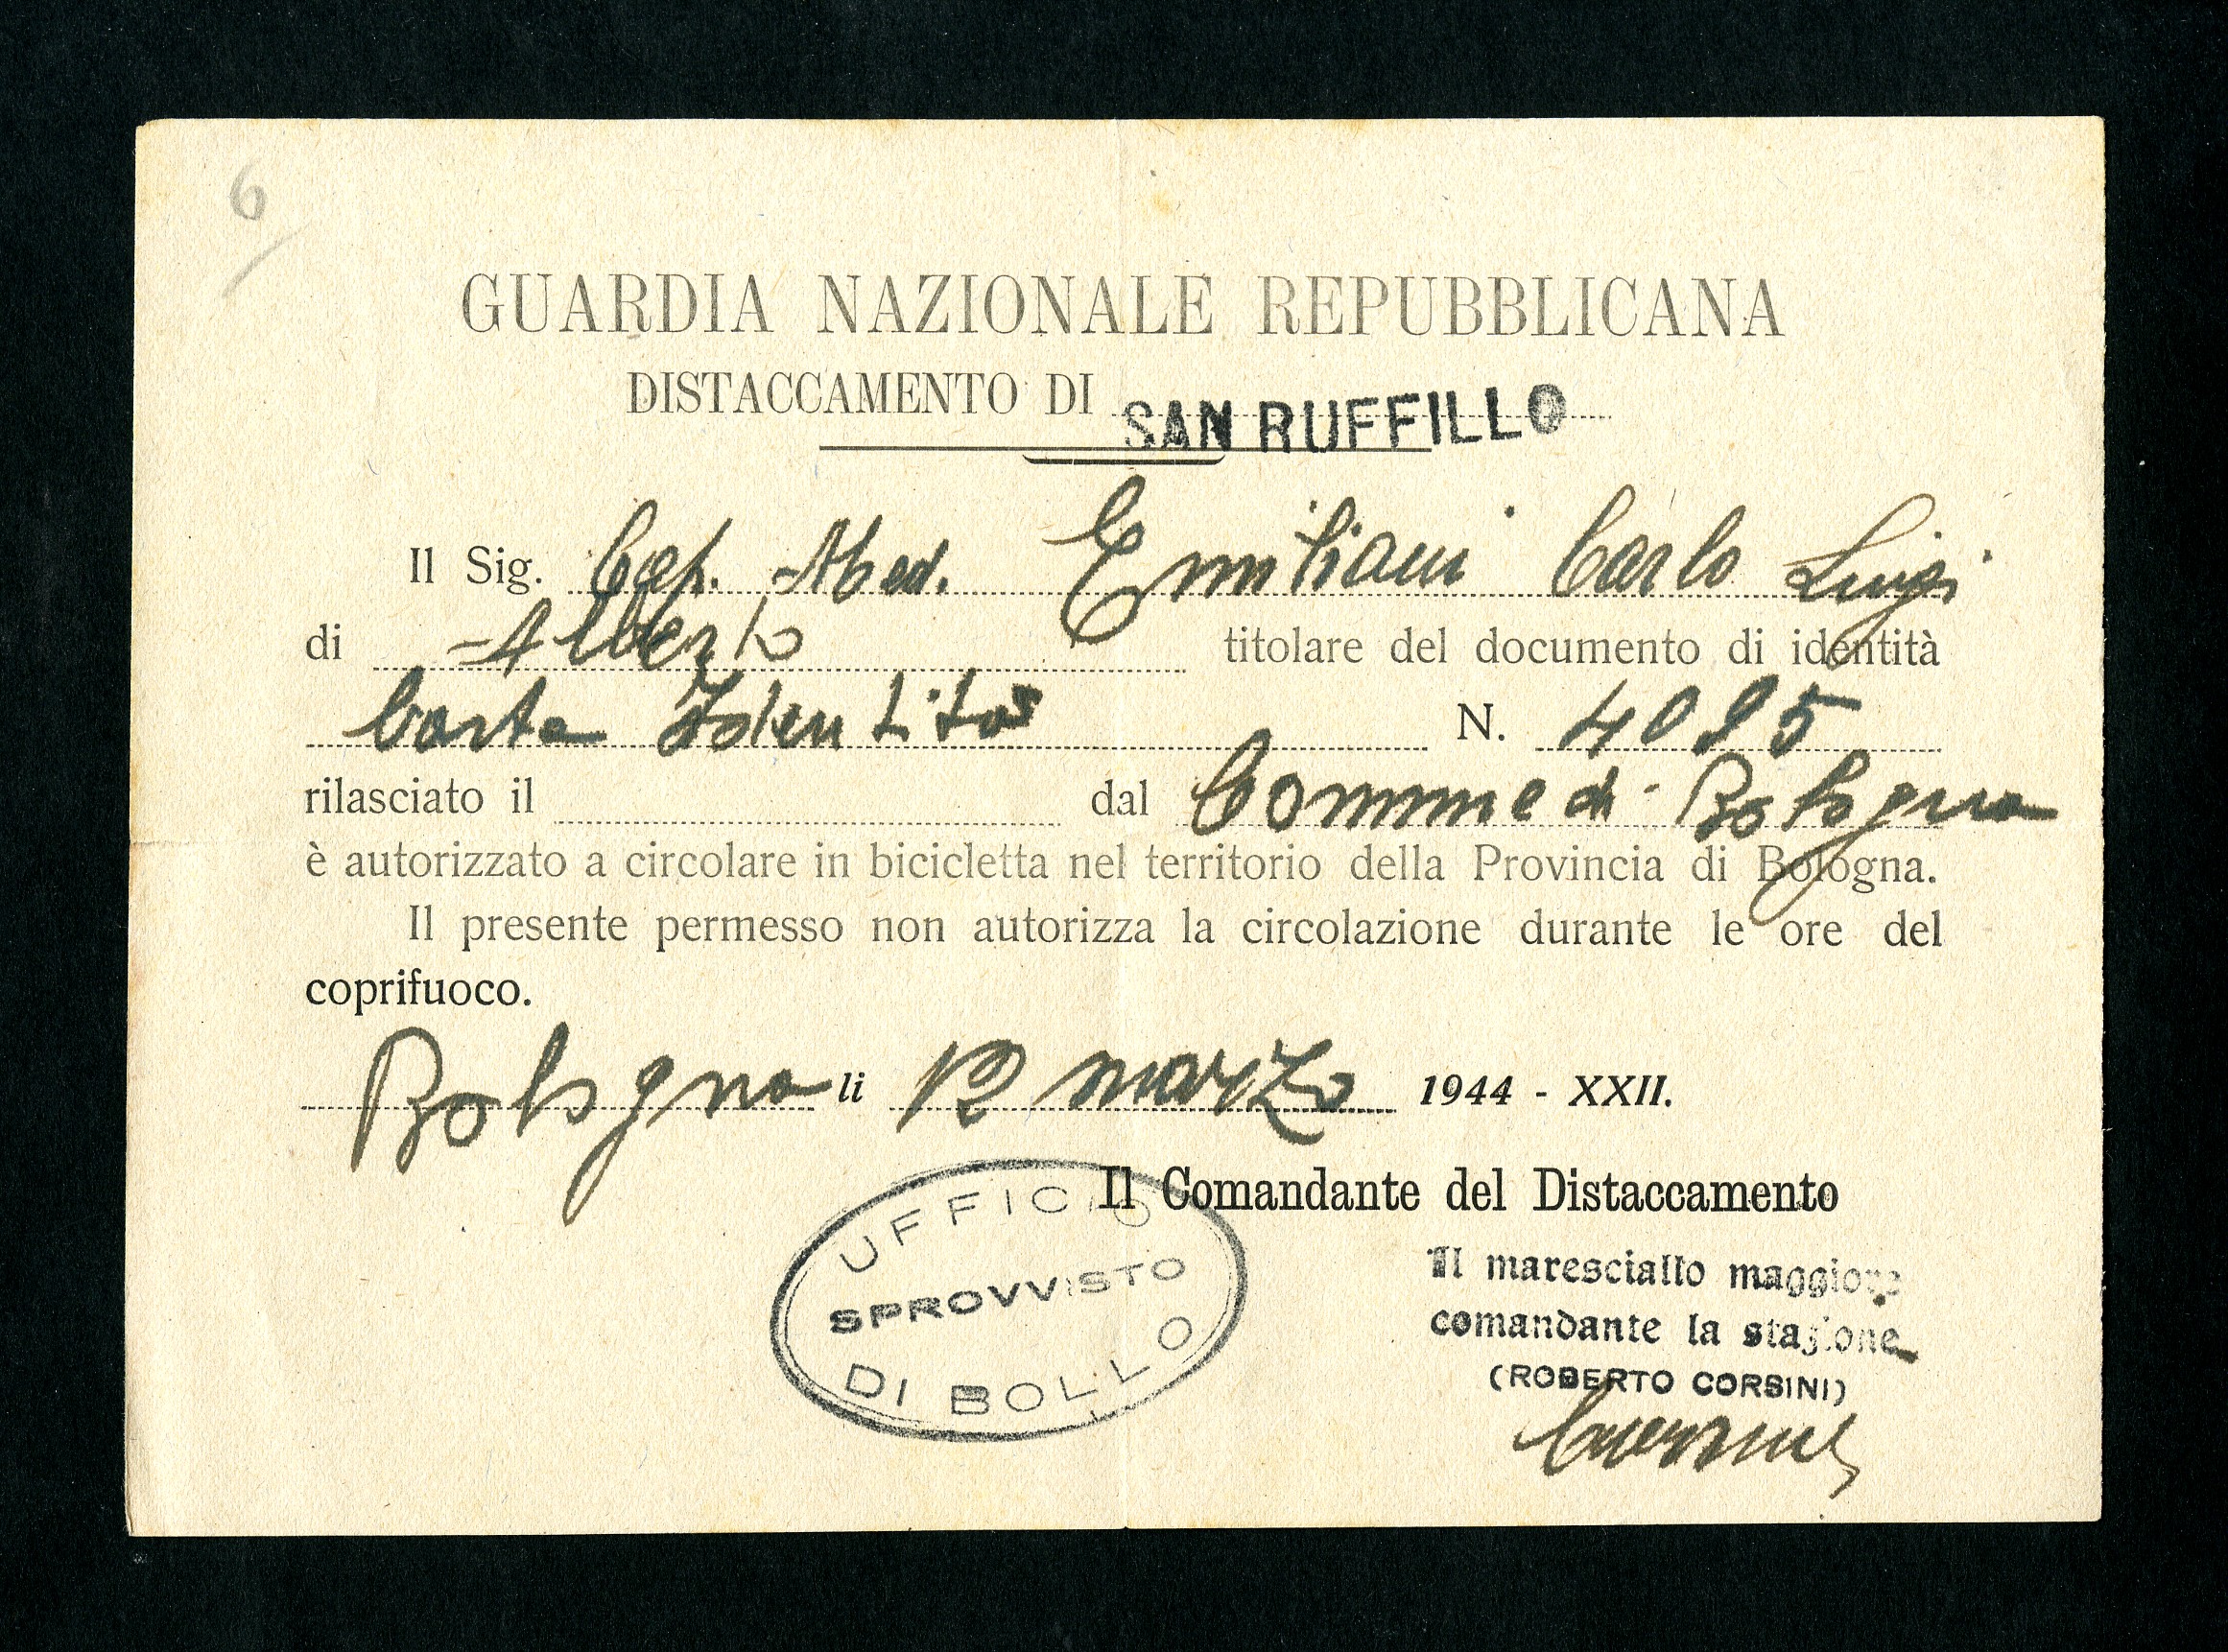 6
GUARDIA NAZIONALE REPUBBLICANA
DISTACCAMENTO DI SAN RUFFILLO
Il Sig. Cap. Med. Emiliani Carlo Luigi
di Alberto titolare del documento di identità
Carta Identità N. 4095
rilasciato il dal Comune di Bologna
è autorizzato a circolare in bicicletta nel territorio della Provincia di Bologna.
Il presente permesso non autorizza la circolazione durante le ore del
coprifuoco.
Bologna li 12 marzo 1944 - XXII.
Il Comandante del Distaccamento
UFFICIO
SPROVVISTO
DI BOLLO
Il maresciallo maggiore
comandante la stazione
(ROBERTO CORSINI)